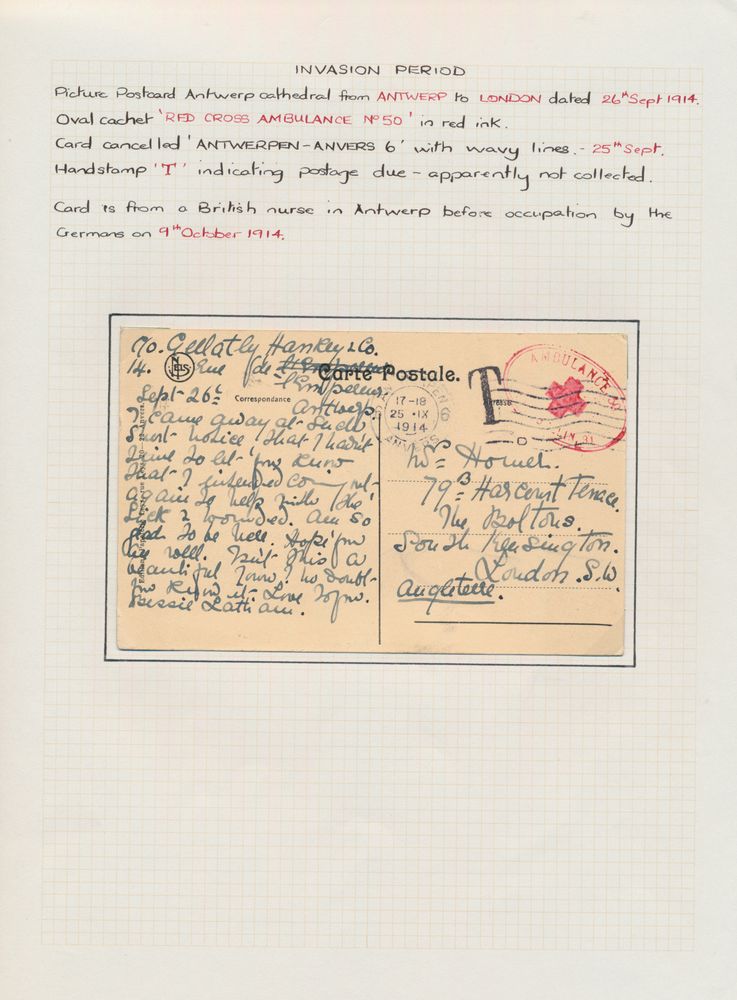 INVASION PERIOD
Picture Postcard Antwerp cathedral from ANTWERP to LONDON dated 26th Sept 1914.
Oval cachet 'RED CROSS AMBULANCE Nº 50' in red ink.
Card cancelled 'ANTWERPEN-ANVERS 6' with wavy lines. - 25th Sept.
Handstamp 'T' indicating postage due - apparently not collected.
Card is from a British nurse in Antwerp before occupation by the
Germans on 9th October 1914.
c/o. Gellatly Hankey & Co.
14. Rue de
Carte Postale.
Sept 26t
Correspondance
Antwerp.
I came away at such
short notice that I hadn't
time to let you know
that I intended coming out
again to help with the
sick & wounded. Am so
glad to be here. Hope you
are well. Isn't this a
beautiful town? No doubt
you know it. Love to you.
Bessie Latham.
17-18
25 IX
1914
6
ANVERS
T
AMBULANCE
Mrs Horner.
79 Harcourt Terrace.
The Boltons.
South Kensington.
London. S.W.
Angleterre.